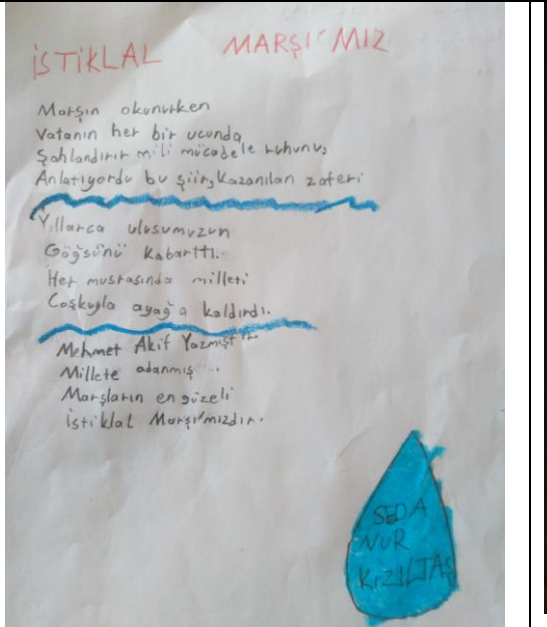 İSTİKLAL MARŞI'MIZ
Marşın okunurken
Vatanın her bir ucunda
Şahlandırır mili mücadele ruhunu,
Anlatıyordu bu şiir, kazanılan zaferi
Yıllarca ulusumuzun
Göğsünü kabarttı.
Her mısrasında milleti
Coşkuyla ayağa kaldırdı.
Mehmet Akif Yazmıştır.
Millete adanmış
Marşların en güzeli
İstiklal Marşı'mızdır.
SEDA
NUR
KIZILTAŞ